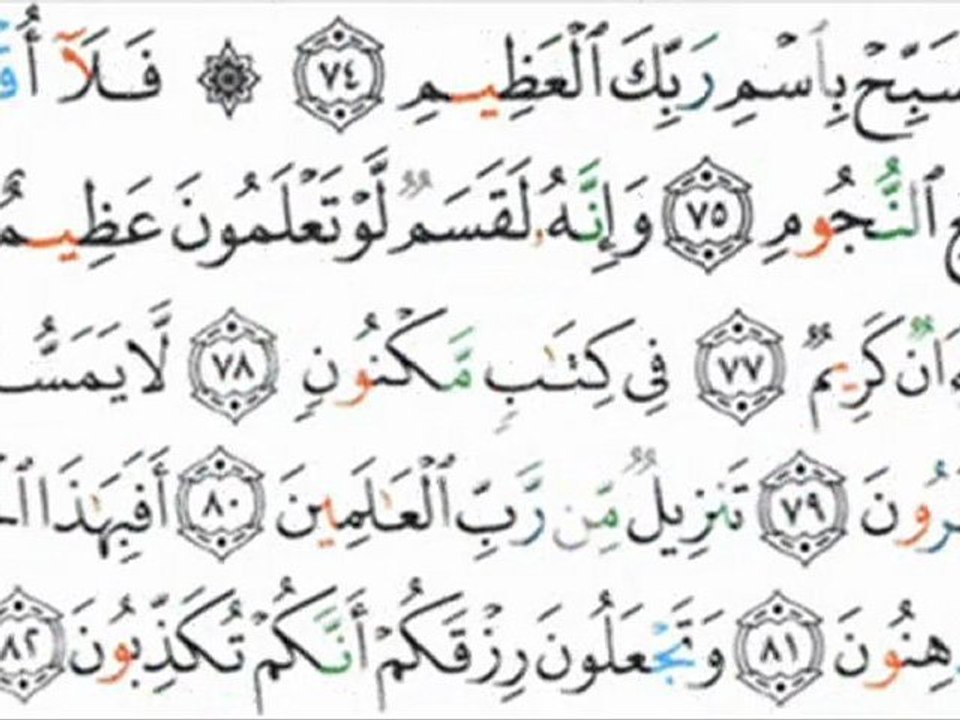 سَبِّحْ بِٱسْمِ رَبِّكَ ٱلْعَظِيمِ ٧٤ ۞ فَلَآ أُق
ٱلنُّجُومِ ٧٥ وَإِنَّهُۥ لَقَسَمٌ لَّوْ تَعْلَمُونَ عَظِيمٌ
كَرِيمٌ ٧٧ فِى كِتَـٰبٍ مَّكْنُونٍ ٧٨ لَّا يَمَسُّ
رُونَ ٧٩ تَنزِيلٌ مِّن رَّبِّ ٱلْعَـٰلَمِينَ ٨٠ أَفَبِهَـٰذَا ٱلْح
هِنُونَ ٨١ وَتَجْعَلُونَ رِزْقَكُمْ أَنَّكُمْ تُكَذِّبُونَ ٨٢